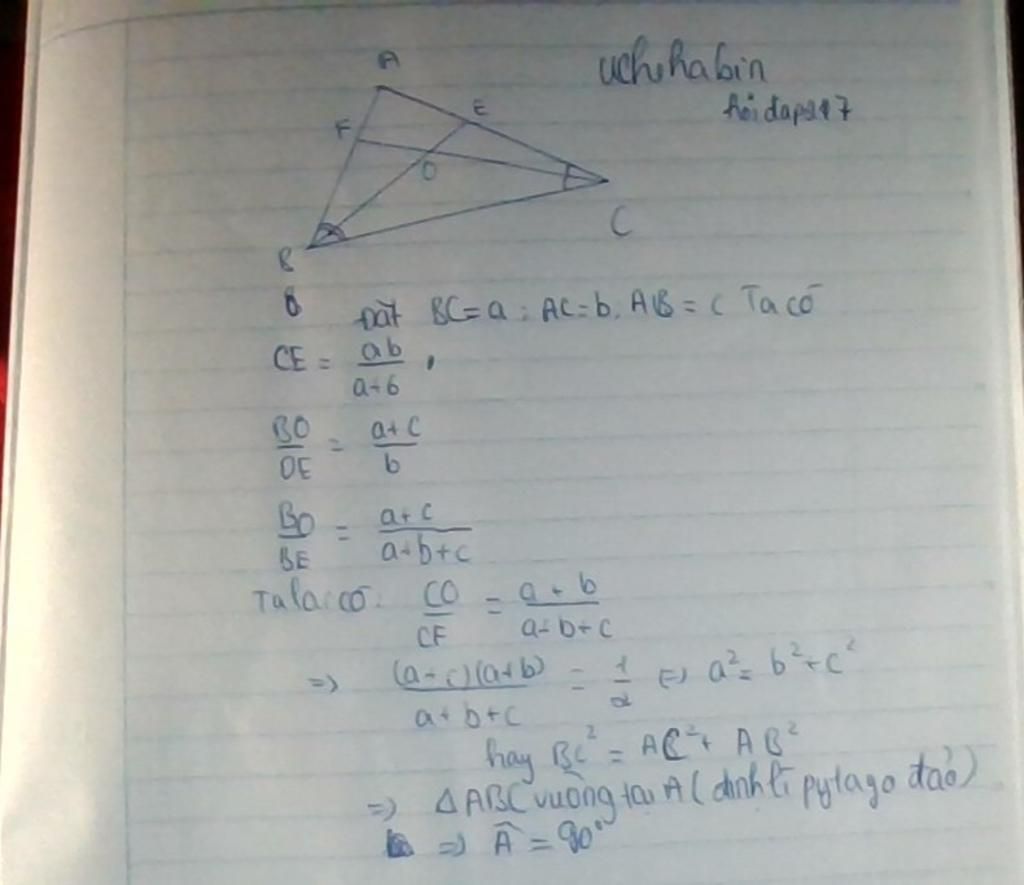 A
uchihabin
hoidap247
E
F
O
C
B
Đặt BC = a ; AC = b, AB = c Ta có
CE = ab/(a+b),
BO/OE = (a+c)/b
BO/BE = (a+c)/(a+b+c)
Ta lại có: CO/CF = (a+b)/(a+b+c)
=> (a+c)(a+b)/(a+b+c) = 1/2 <=> a² = b² + c²
hay BC² = AC² + AB²
=> ΔABC vuông tại A (định lí pytago đảo)
=> Â = 90°